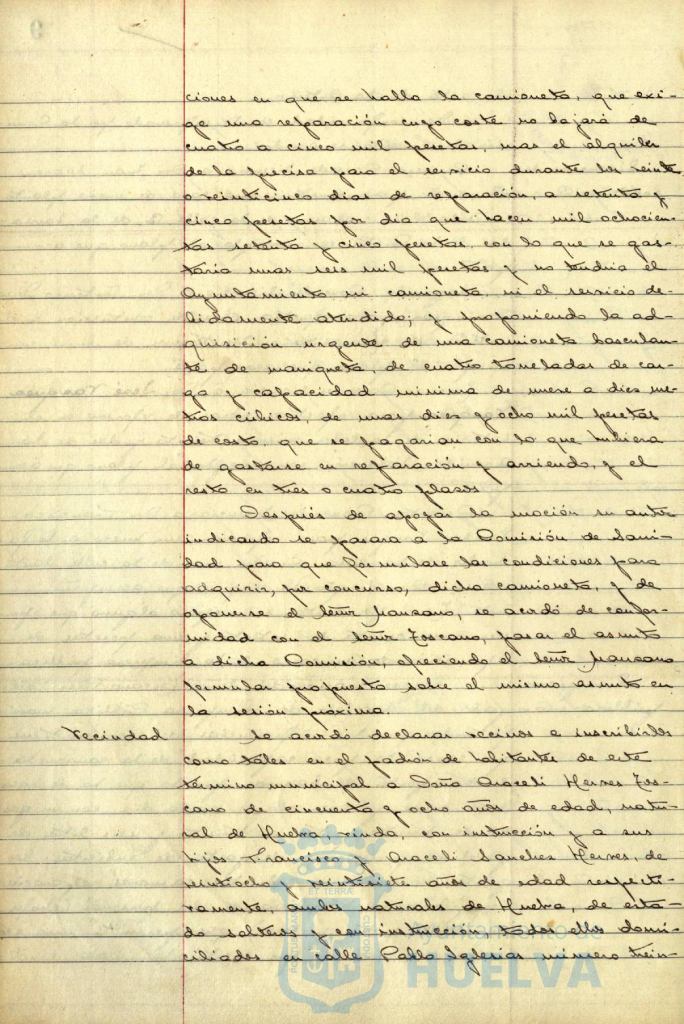 ciones en que se halla la camioneta, que exi-
ge una reparación cuyo coste no bajará de
cuatro a cinco mil pesetas, mas el alquiler
de la precisa para el servicio durante los veinte
o veinticinco dias de reparación, a setenta y
cinco pesetas por dia que hacen mil ochocien-
tas setenta y cinco pesetas, con lo que se gas-
taria unas seis mil pesetas y no tendria el
Ayuntamiento ni camioneta ni el servicio de-
bidamente atendido; y proponiendo la ad-
quisición urgente de una camioneta basculan-
te de maniqueta, de cuatro toneladas de car-
ga y capacidad minima de nueve a diez me-
tros cúbicos, de unas diez y ocho mil pesetas
de costo, que se pagarian con lo que hubiera
de gastarse en reparación y arriendo, y el
resto en tres o cuatro plazos
Después de apoyar la moción su autor
indicando se pasara a la Comisión de Sani-
dad para que formulase las condiciones para
adquirir, por concurso, dicha camioneta, y de
oponerse el Señor Manzano, se acordó de confor-
midad con el Señor Toscano, pasar el asunto
a dicha Comisión, ofreciendo el Señor Manzano
formular propuesta sobre el mismo asunto en
la sesión próxima.
Vecindad
Se acordó declarar vecinos e inscribirlos
como tales en el padrón de habitantes de este
término municipal a Doña Araceli Hermes Tos-
cano de cincuenta y ocho años de edad, natu-
ral de Huelva, viuda, con instrucción y a sus
hijos Francisco y Araceli Sanchez Hermes, de
veintiocho y veintisiete años de edad respecti-
vamente, ambos naturales de Huelva, de esta-
do solteros y con instrucción todos ellos domi-
ciliados en calle Pablo Iglesias número trein-
Ayuntamiento de
HUELVA